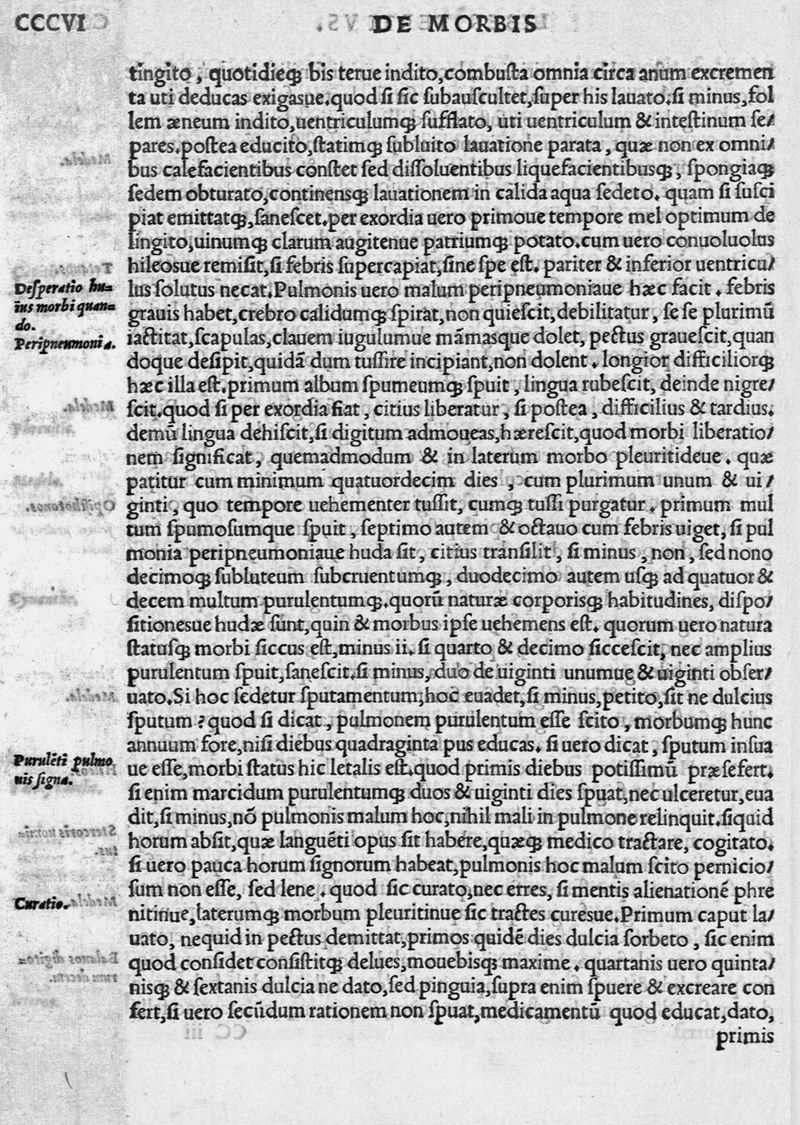 CCCVI
DE MORBIS
tingito, quotidieq́ꝫ bis terue indito,combuſta omnia circa anum excremen
ta uti deducas exigasue.quod ſi ſic ſubauſcultet,ſuper his lauato.ſi minus,fol
lem æneum indito,uentriculumq́ꝫ ſufflato, uti uentriculum & inteſtinum ſe/
pares.poſtea educito,ſtatimq́ꝫ ſubluito lauatione parata, quæ non ex omni/
bus calefacientibus conſtet ſed diſſoluentibus liquefacientibusq́ꝫ, ſpongiaq́ꝫ
ſedem obturato,continensq́ꝫ lauationem in calida aqua ſedeto. quam ſi ſuſci
piat emittatq́ꝫ,ſaneſcet.per exordia uero primoue tempore mel optimum de
lingito,uinumq́ꝫ clarum augitenue patriumq́ꝫ potato.cum uero conuoluolus
hileosue remiſit,ſi febris ſupercapiat,ſine ſpe eſt. pariter & inferior uentricu/
lus ſolutus necat.Pulmonis uero malum peripneumoniaue hæc facit. febris
grauis habet,crebro calidumq́ꝫ ſpirat,non quieſcit,debilitatur, ſe ſe plurimū
iactitat,ſcapulas,clauem iugulumue mãmasque dolet, pectus graueſcit,quan
doque deſipit,quidã dum tuſſire incipiant,non dolent. longior difficiliorq́ꝫ
hæc illa eſt.primum album ſpumeumq́ꝫ ſpuit, lingua rubeſcit, deinde nigre/
ſcit.quod ſi per exordia fiat, citius liberatur, ſi poſtea, difficilius & tardius.
demū lingua dehiſcit,ſi digitum admoueas,hæreſcit,quod morbi liberatio/
nem ſignificat, quemadmodum & in laterum morbo pleuritideue. quæ
patitur cum minimum quatuordecim dies, cum plurimum unum & ui/
ginti, quo tempore uehementer tuſſit, cumq́ꝫ tuſſi purgatur. primum mul
tum ſpumoſumque ſpuit, ſeptimo autem & octauo cum febris uiget, ſi pul
monia peripneumoniaue huda ſit, citius tranſilit, ſi minus, non, ſed nono
decimoq́ꝫ ſubluteum ſubcruentumq́ꝫ, duodecimo autem uſq́ꝫ ad quatuor &
decem multum purulentumq́ꝫ.quorū naturæ corporisq́ꝫ habitudines, diſpo/
ſitionesue hudæ ſunt,quin & morbus ipſe uehemens eſt. quorum uero natura
ſtatusq́ꝫ morbi ſiccus eſt,minus ii. ſi quarto & decimo ſicceſcit, nec amplius
purulentum ſpuit,ſaneſcit.ſi minus,duo de uiginti unumue & uiginti obſer/
uato.Si hoc ſedetur ſputamentum,hoc euadet,ſi minus,petito,ſit ne dulcius
ſputum? quod ſi dicat, pulmonem purulentum eſſe ſcito, morbumq́ꝫ hunc
annuum fore,niſi diebus quadraginta pus educas. ſi uero dicat, ſputum inſua
ue eſſe,morbi ſtatus hic letalis eſt.quod primis diebus potiſſimū præſefert.
ſi enim marcidum purulentumq́ꝫ duos & uiginti dies ſpuat,nec ulceretur,eua
dit,ſi minus,nō pulmonis malum hoc,nihil mali in pulmone relinquit.ſiquid
horum abſit,quæ languẽti opus ſit habere,quæq́ꝫ medico tractare, cogitato.
ſi uero pauca horum ſignorum habeat,pulmonis hoc malum ſcito pernicio/
ſum non eſſe, ſed lene. quod ſic curato,nec erres, ſi mentis alienationẽ phre
nitinue,laterumq́ꝫ morbum pleuritinue ſic tractes curesue.Primum caput la/
uato, nequid in pectus demittat,primos quidẽ dies dulcia ſorbeto, ſic enim
quod conſidet conſiſtitq́ꝫ delues,mouebisq́ꝫ maxime. quartanis uero quinta/
nisq́ꝫ & ſextanis dulcia ne dato,ſed pinguia,ſupra enim ſpuere & excreare con
fert,ſi uero ſecūdum rationem non ſpuat,medicamentū quod educat,dato,
primis
Deſperatio hu=
ius morbi quan=
do.
Peripneumonia.
Purulẽti pulmo
nis ſigna.
Curatio.